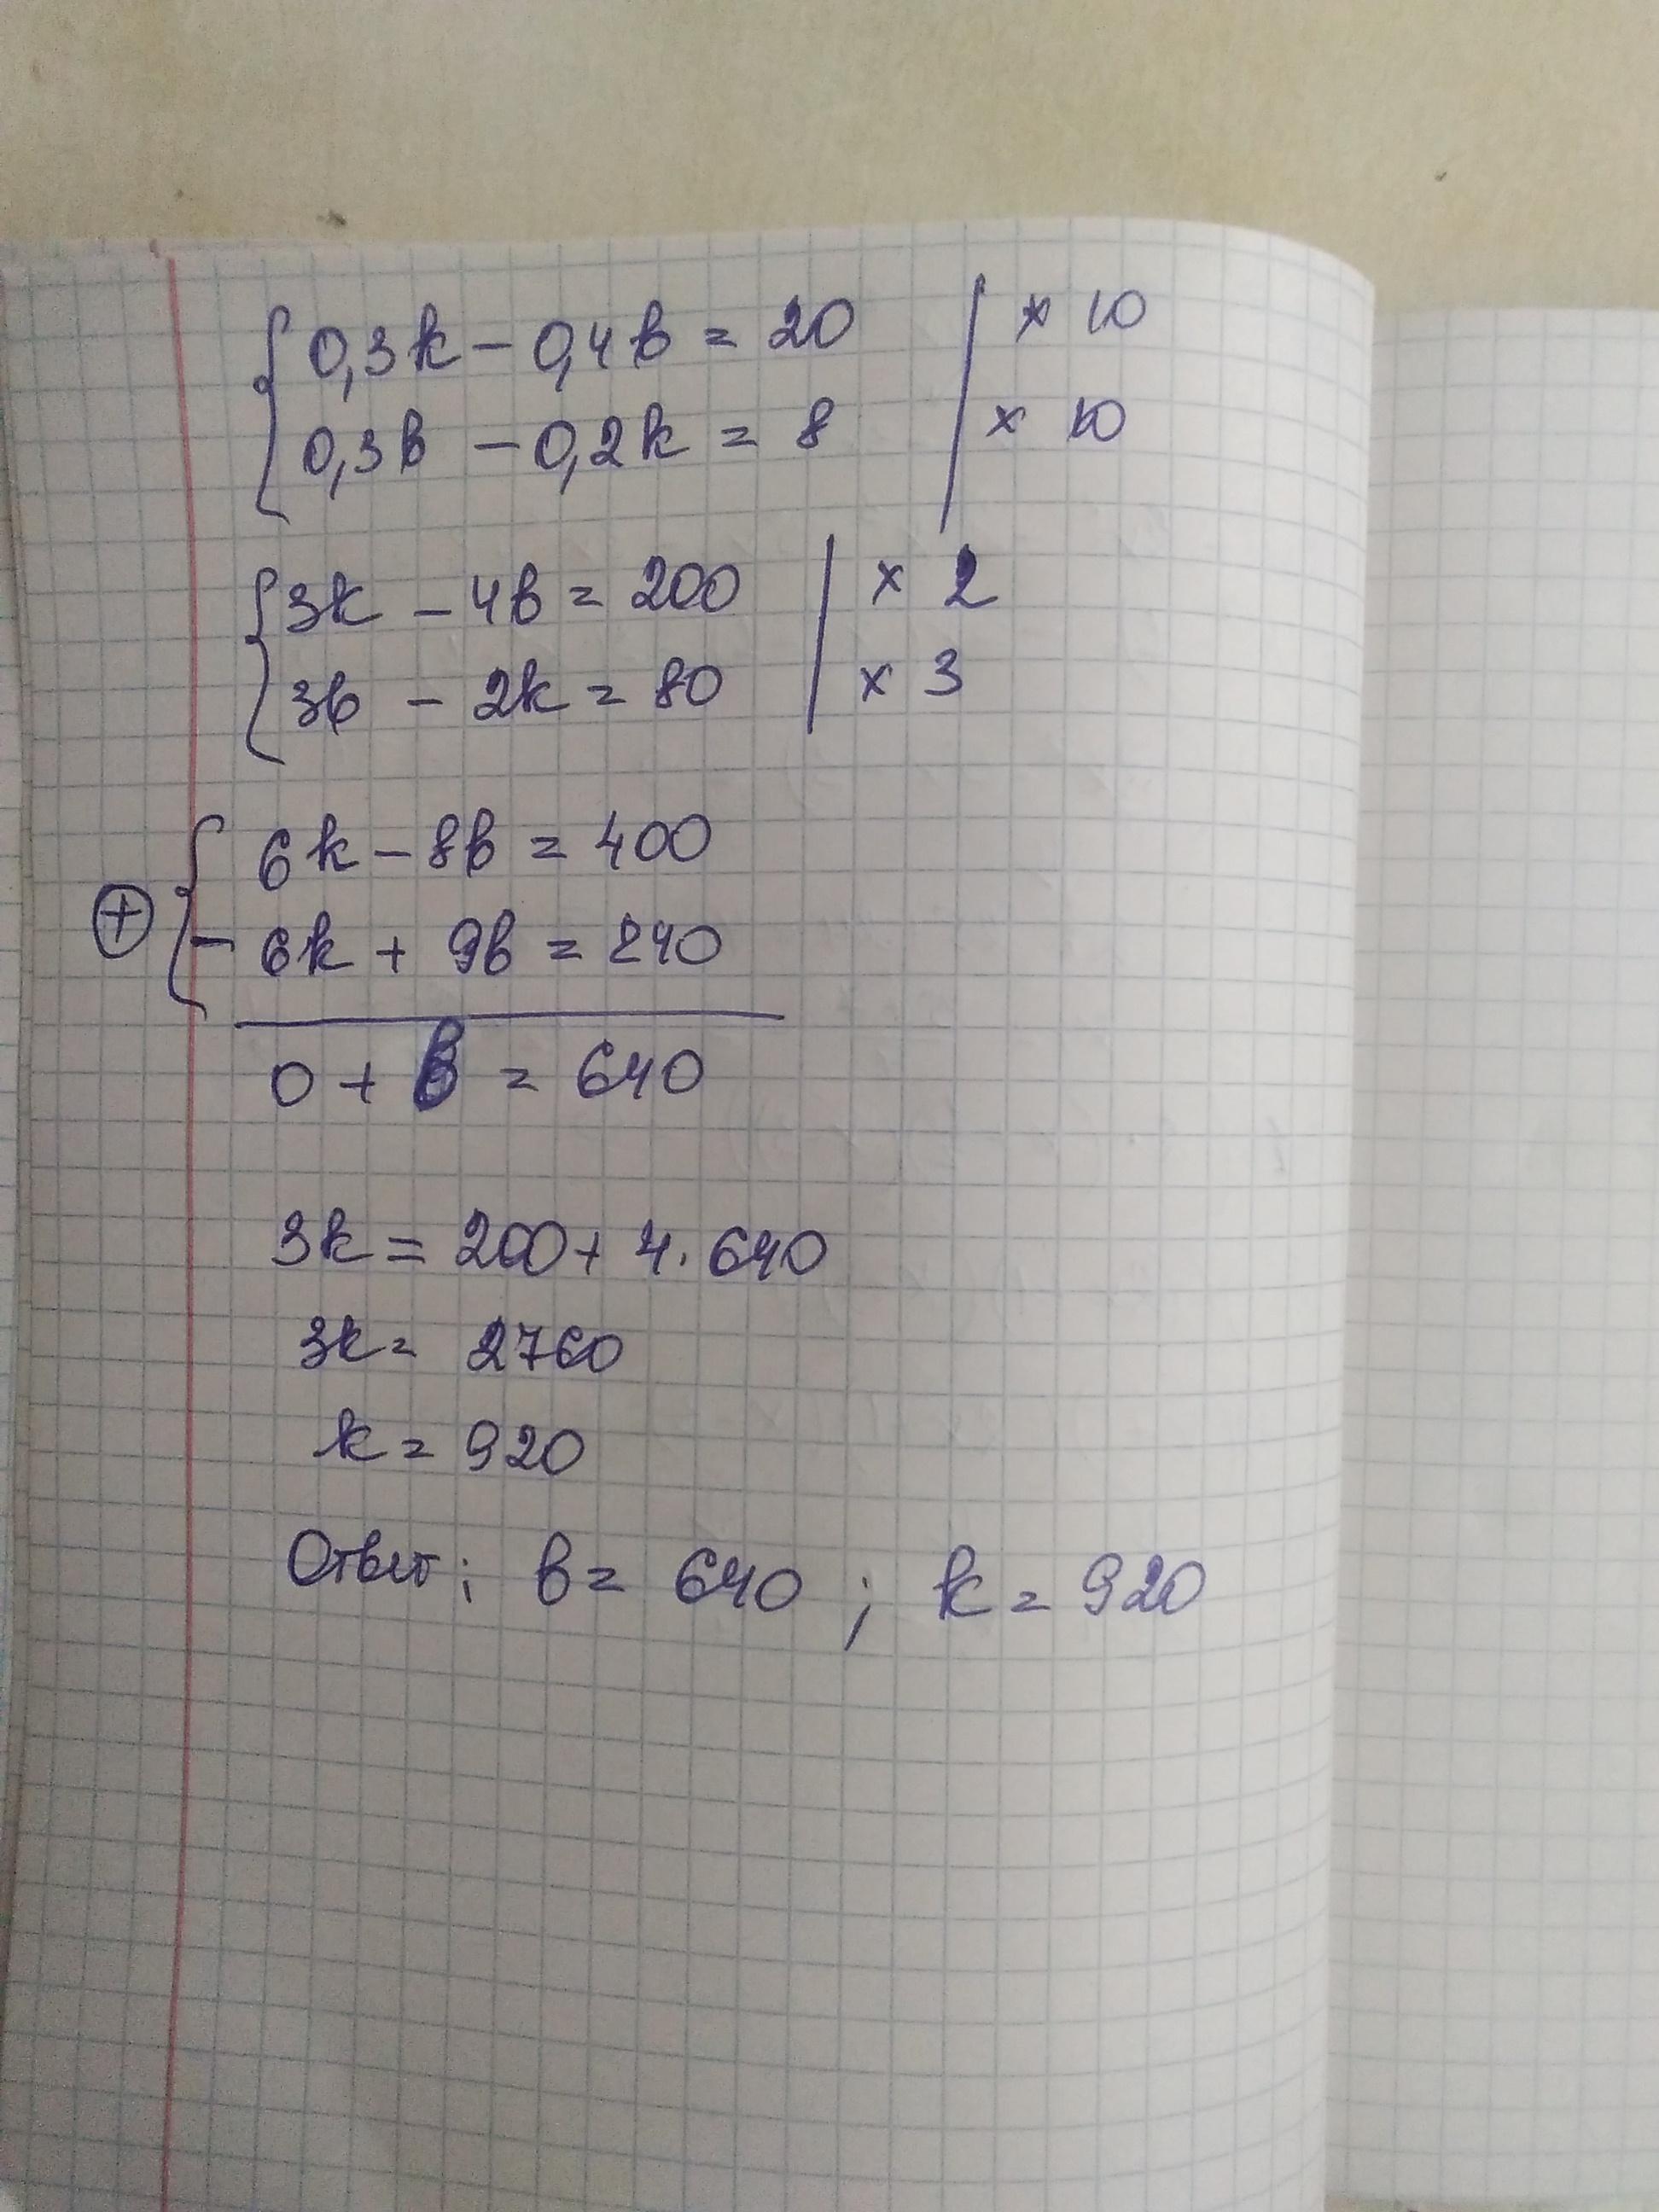 { 0,3k - 0,4b = 20 | × 10
0,3b - 0,2k = 8 | × 10
{ 3k - 4b = 200 | × 2
3b - 2k = 80 | × 3
{ 6k - 8b = 400
⊕ - 6k + 9b = 240
0 + b = 640
3k = 200 + 4 · 640
3k = 2760
k = 920
Ответ: b = 640 ; k = 920